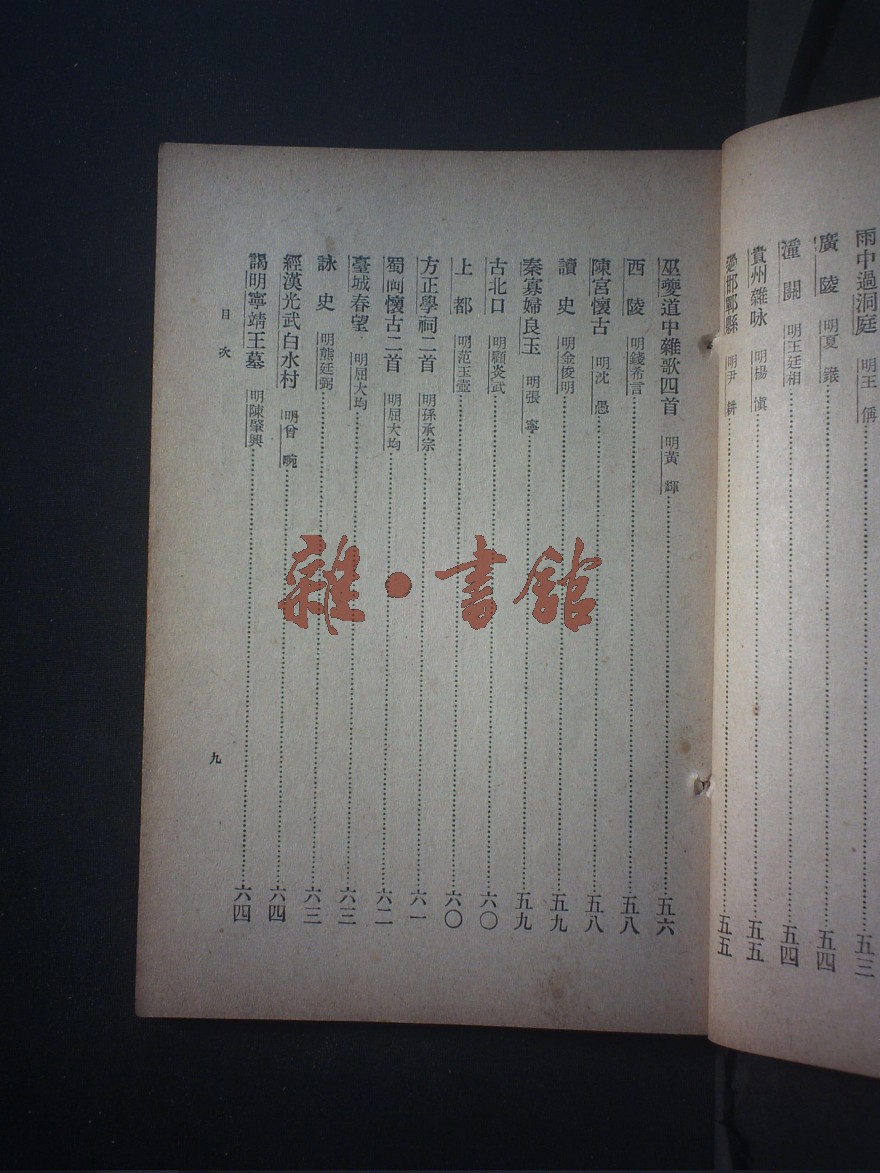 雨中過洞庭 明王偁 五三
廣陵 明夏鍭 五四
潼關 明王廷相 五四
貴州雜咏 明楊慎 五五
邯鄲縣 明尹耕 五五
巫夔道中雜歌四首 明黃輝 五六
西陵 明錢希言 五八
陳宮懷古 明沈愚 五八
讀史 明金俊明 五九
秦寡婦良玉 明張寧 五九
古北口 明顧炎武 六〇
上都 明范玉壺 六〇
方正學祠二首 明孫承宗 六一
蜀岡懷古二首 明屈大均 六二
臺城春望 明屈大均 六三
詠史 明熊廷弼 六三
經漢光武白水村 明曾畹 六四
謁明寧靖王墓 明陳肇興 六四
目次
九
雜·書館